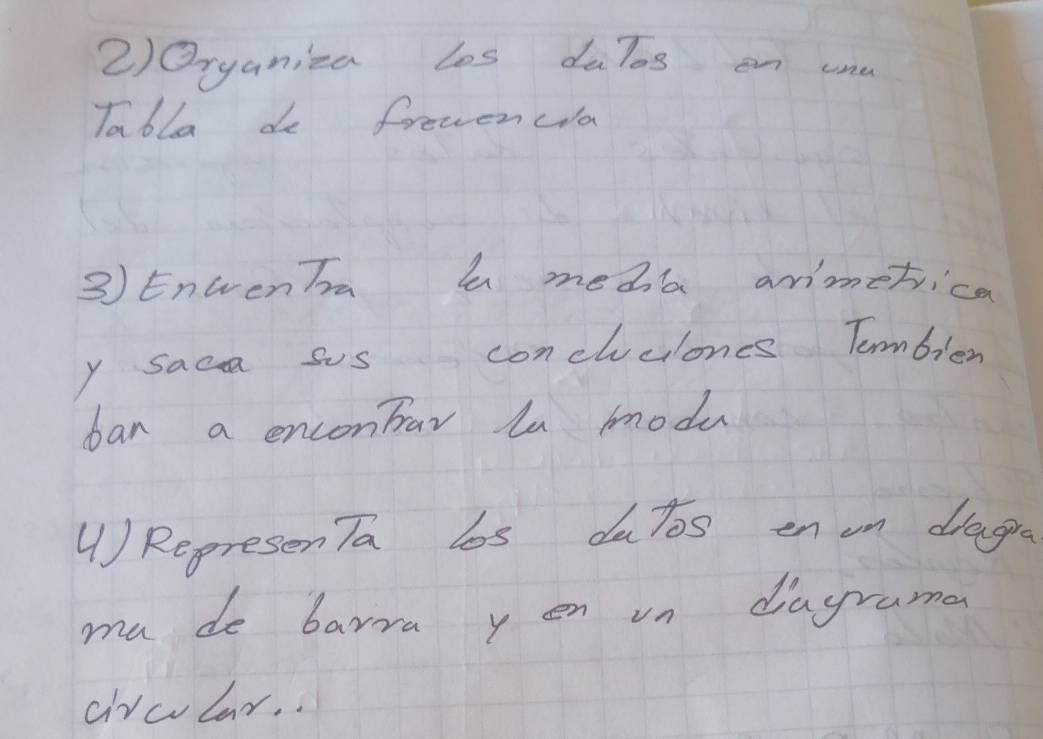 2) Organiza los datos en una
Tabla de frecuencia
3) Encuentra la media arimetrica
y saca sus concluciones Tambien
ban a encontrar la moda
4) Representa los datos en un diagra
ma de barra y en un diagrama
circular..